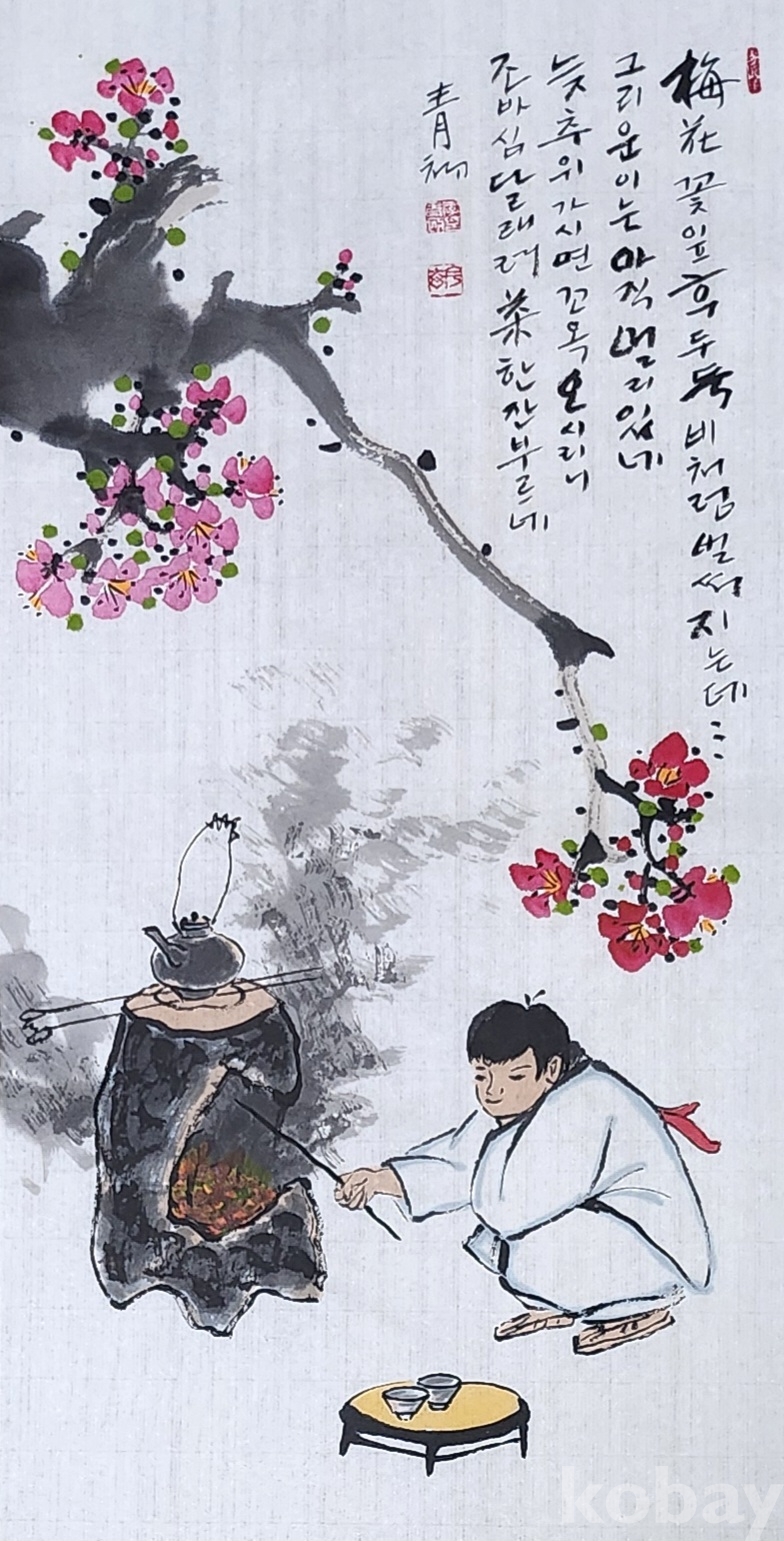 梅花 꽃잎 후두둑 비처럼 벌써 지는데...
그리운 이는 아직 멀리 있네
늦추위 가시면 꼬옥 오시리니
조바심 달래려 茶 한잔 부르네
青
kobay